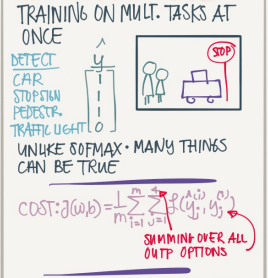 TRAINING ON MULT. TASKS AT
ONCE
DETECT ŷ
CAR 1
STOPSIGN 1
PEDESTR. 1
TRAFFIC LIGHT 0
STOP
UNLIKE SOFMAX · MANY THINGS
CAN BE TRUE
COST: J(w,b) = 1/m Σ_{i=1}^{m} Σ_{j=1}^{4} ℒ(ŷ_j^{(i)}, y_j^{(i)})
SUMMING OVER ALL
OUTP OPTIONS